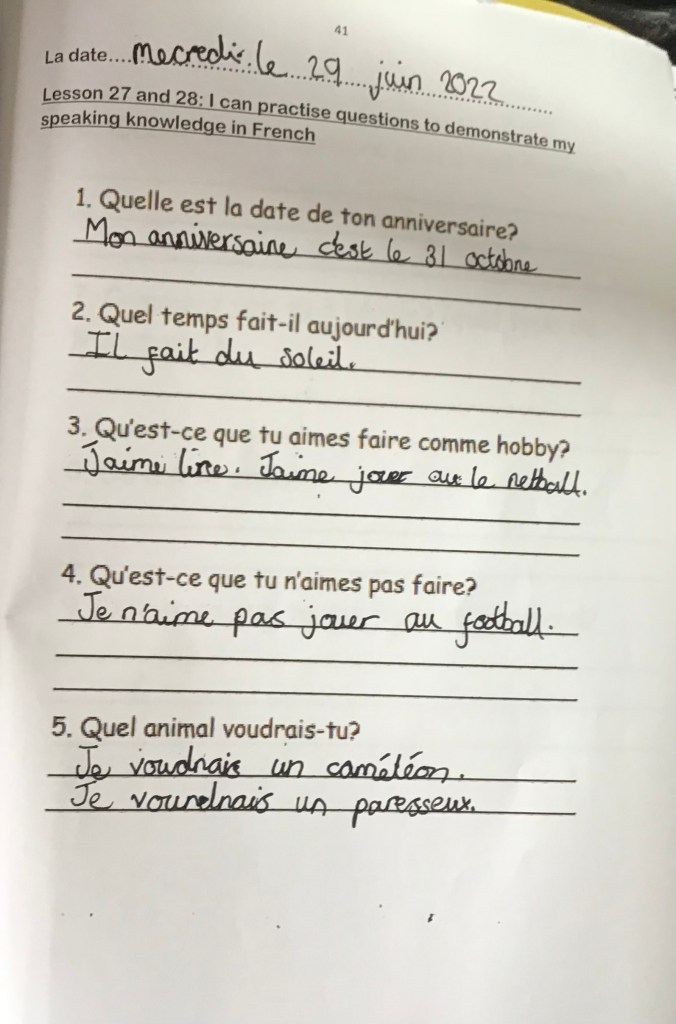 41
La date....mecredi.le...29....juin 2022............
Lesson 27 and 28: I can practise questions to demonstrate my
speaking knowledge in French
1. Quelle est la date de ton anniversaire?
Mon anniversaire c'est le 31 octobre
2. Quel temps fait-il aujourd'hui?
Il fait du soleil.
3. Qu'est-ce que tu aimes faire comme hobby?
J'aime lire. J'aime jouer au le netball.
4. Qu'est-ce que tu n'aimes pas faire?
Je n'aime pas jouer au football.
5. Quel animal voudrais-tu?
Je voudrais un caméléon.
Je voundrais un paresseux.